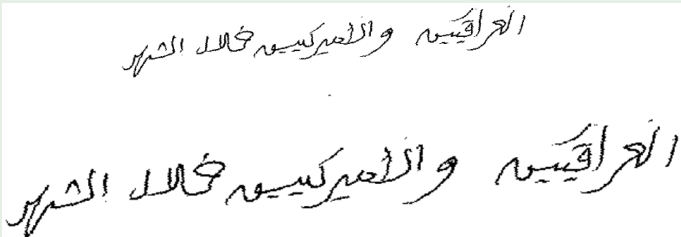 العراقيين والأميركيين خلال الشهر
العراقيين والأميركيين خلال الشهر